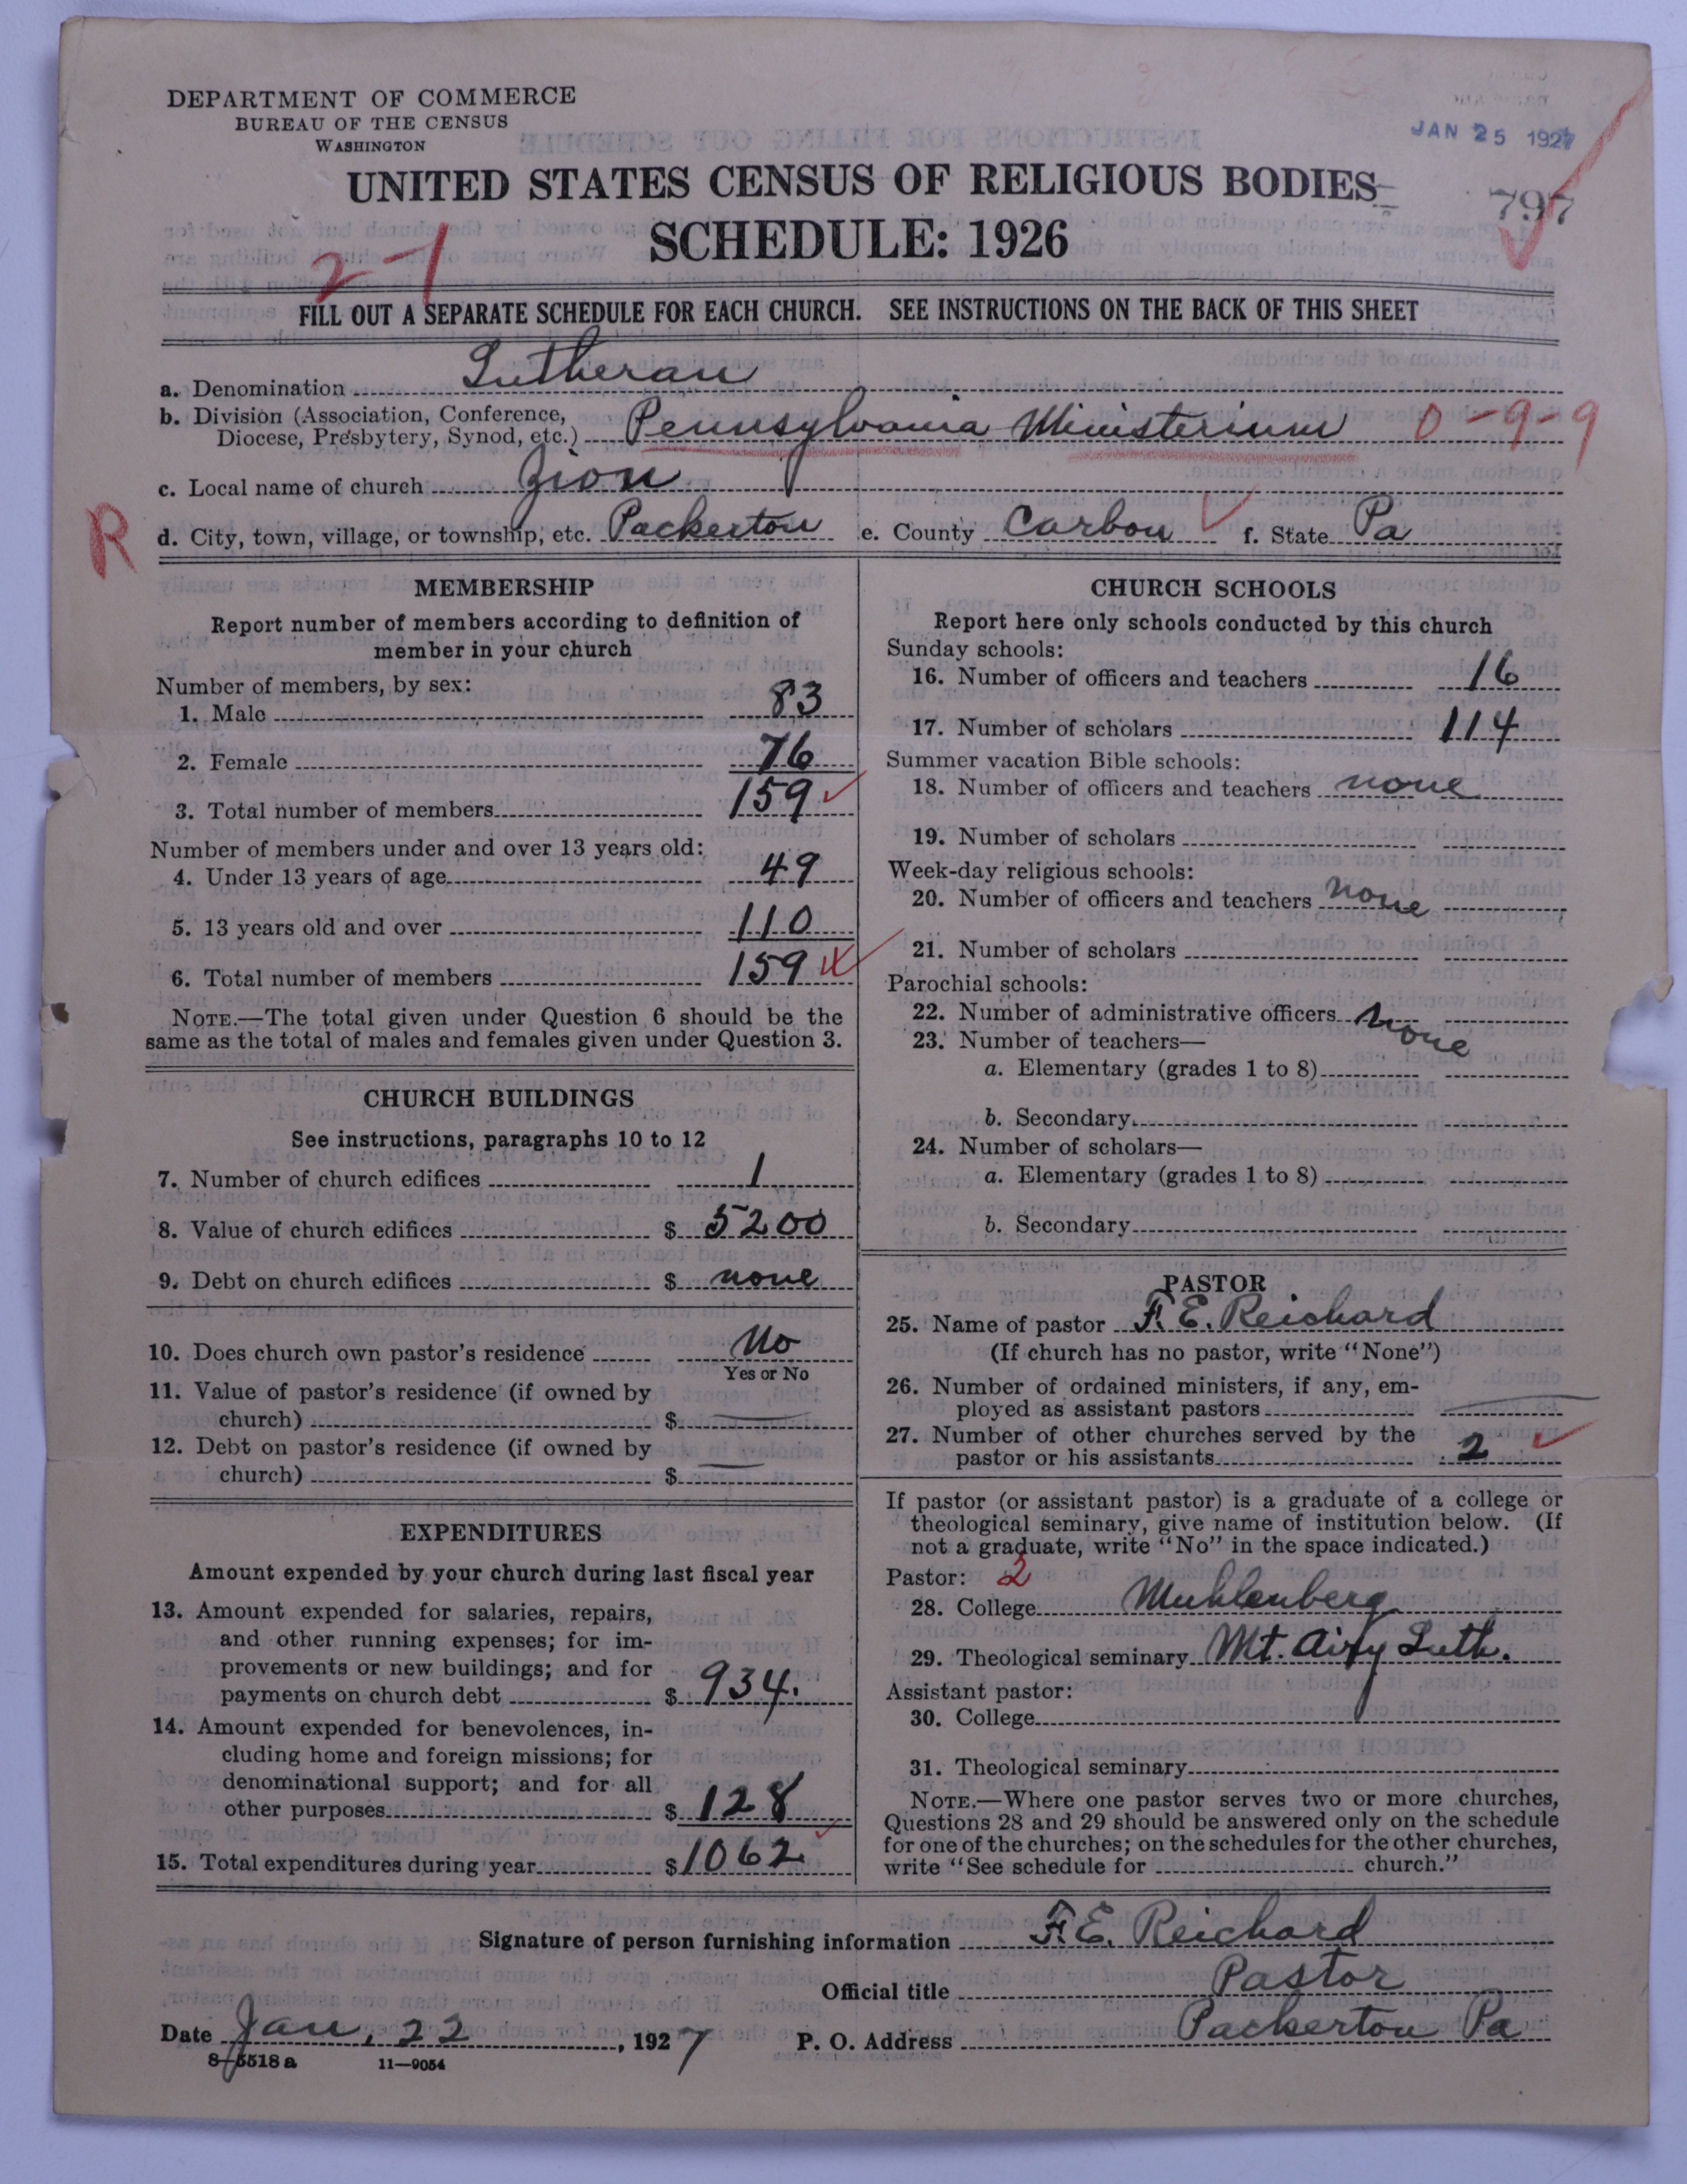 DEPARTMENT OF COMMERCE
BUREAU OF THE CENSUS
WASHINGTON
JAN 25 1927
UNITED STATES CENSUS OF RELIGIOUS BODIES
797
SCHEDULE: 1926
2-1
FILL OUT A SEPARATE SCHEDULE FOR EACH CHURCH. SEE INSTRUCTIONS ON THE BACK OF THIS SHEET
a. Denomination Lutheran
b. Division (Association, Conference,
Diocese, Presbytery, Synod, etc.) Pennsylvania Ministerium 0-9-9
c. Local name of church Zion
R
d. City, town, village, or township, etc. Packerton e. County Carbon f. State Pa
MEMBERSHIP
Report number of members according to definition of
member in your church
Number of members, by sex:
1. Male 83
2. Female 76
3. Total number of members 159
Number of members under and over 13 years old:
4. Under 13 years of age 49
5. 13 years old and over 110
6. Total number of members 159
NOTE.—The total given under Question 6 should be the
same as the total of males and females given under Question 3.
CHURCH BUILDINGS
See instructions, paragraphs 10 to 12
7. Number of church edifices 1
8. Value of church edifices $ 5200
9. Debt on church edifices $ none
10. Does church own pastor's residence No
Yes or No
11. Value of pastor's residence (if owned by
church) $
12. Debt on pastor's residence (if owned by
church) $
EXPENDITURES
Amount expended by your church during last fiscal year
13. Amount expended for salaries, repairs,
and other running expenses; for im-
provements or new buildings; and for
payments on church debt $ 934.
14. Amount expended for benevolences, in-
cluding home and foreign missions; for
denominational support; and for all
other purposes $ 128
15. Total expenditures during year $ 1062
CHURCH SCHOOLS
Report here only schools conducted by this church
Sunday schools:
16. Number of officers and teachers 16
17. Number of scholars 114
Summer vacation Bible schools:
18. Number of officers and teachers none
19. Number of scholars
Week-day religious schools:
20. Number of officers and teachers none
21. Number of scholars
Parochial schools:
22. Number of administrative officers none
23. Number of teachers—
a. Elementary (grades 1 to 8)
b. Secondary
24. Number of scholars—
a. Elementary (grades 1 to 8)
b. Secondary
PASTOR
25. Name of pastor F. E. Reichard
(If church has no pastor, write "None")
26. Number of ordained ministers, if any, em-
ployed as assistant pastors
27. Number of other churches served by the
pastor or his assistants 2
If pastor (or assistant pastor) is a graduate of a college or
theological seminary, give name of institution below. (If
not a graduate, write "No" in the space indicated.)
Pastor: 2
28. College Muhlenberg
29. Theological seminary Mt. Airy Luth.
Assistant pastor:
30. College
31. Theological seminary
NOTE.—Where one pastor serves two or more churches,
Questions 28 and 29 should be answered only on the schedule
for one of the churches; on the schedules for the other churches,
write "See schedule for church."
Signature of person furnishing information F. E. Reichard
Official title Pastor
Date Jan. 22, 1927 P. O. Address Packerton Pa
8-5518 a 11-9054